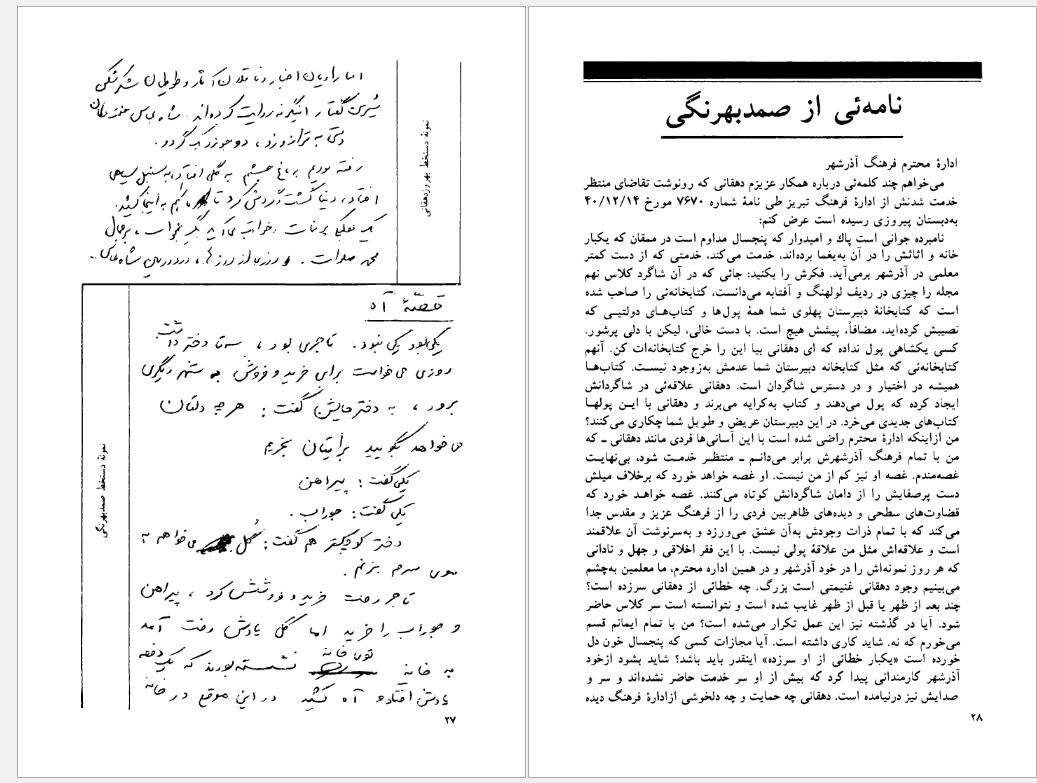 اما راویان اخبار و ناقلان آثار و طوطیان شکرشکن
شیرین گفتار اینگونه روایت کرده‌اند. شاه عباس
دستی به ترازو زد، دو جوز
رفته بودیم به باغ به گلی افتاد، به سنبل سیاهی
افتاد، دنیا گشت و گردش کرد تا ما هم به اینجا
یک
محمد صلوات. و روزی از روزها، در دورهٔ شاه عباس...
نمونهٔ دستخط بهروز دهقانی
قصّهٔ آه
یکی بود یکی نبود. تاجری بود، سه تا دختر داشت
روزی می‌خواست برای خرید و فروش به شهر دیگری
برود، به دخترهایش گفت: هر چه دلتان
می‌خواهد بگویید برایتان بخرم
یکی گفت: پیراهن
یکی گفت: جوراب.
دختر کوچکتر هم گفت: گُل می‌خواهم به
موی سرم بزنم.
تاجر رفت خرید و فروشش کرد، پیراهن
و جوراب را خرید اما گل یادش رفت آمد
به خانه توی خانه نشسته بودند که یک دفعه
یادش افتاد و آه کشید در این موقع در خانه
نمونهٔ دستخط صمدبهرنگی
۲۷
نامه‌ئی از صمدبهرنگی
ادارهٔ محترم فرهنگ آذرشهر
می‌خواهم چند کلمه‌ئی درباره همکار عزیزم دهقانی که رونوشت تقاضای منتظر
خدمت شدنش از ادارهٔ فرهنگ تبریز طی نامهٔ شماره ۷۶۷۰ مورخ ۴۰/۱۲/۱۴
به‌دبستان پیروزی رسیده است عرض کنم:
نامبرده جوانی است پاك و امیدوار که پنجسال مداوم است در ممقان که یکبار
خانه و اثاثش را در آن به‌یغما برده‌اند، خدمت می‌کند، خدمتی که از دست کمتر
معلمی در آذرشهر برمی‌آید. فکرش را بکنید: جائی که در آن شاگرد کلاس نهم
مجله را چیزی در ردیف لولهنگ و آفتابه می‌دانست، کتابخانه‌ئی را صاحب شده
است که کتابخانهٔ دبیرستان پهلوی شما همهٔ پول‌ها و کتاب‌های دولتیی که
نصیبش کرده‌اید، مضافاً، پیشش هیچ است. با دست خالی، لیکن با دلی پرشور.
کسی یکشاهی پول نداده که ای دهقانی بیا این را خرج کتابخانه‌ات کن. آنهم
کتابخانه‌ئی که مثل کتابخانه دبیرستان شما عدمش به‌زوجود نیست. کتاب‌ها
همیشه در اختیار و در دسترس شاگردان است. دهقانی علاقه‌ئی در شاگردانش
ایجاد کرده که پول می‌دهند و کتاب به‌کرایه می‌برند و دهقانی با این پولها
کتاب‌های جدیدی می‌خرد. در این دبیرستان عریض و طویل شما چکاری می‌کنند؟
من ازاینکه ادارهٔ محترم راضی شده است با این آسانی‌ها فردی مانند دهقانی ـ که
من با تمام فرهنگ آذرشهرش برابر می‌دانم ـ منتظر خدمت شود، بی‌نهایت
غصه‌مندم. غصه او نیز کم از من نیست. او غصه خواهد خورد که برخلاف میلش
دست پرصفایش را از دامان شاگردانش کوتاه می‌کنند. غصه خواهد خورد که
قضاوت‌های سطحی و دیده‌های ظاهربین فردی را از فرهنگ عزیز و مقدس جدا
می‌کند که با تمام ذرات وجودش به‌آن عشق می‌ورزد و به‌سرنوشت آن علاقمند
است و علاقه‌اش مثل من علاقهٔ پولی نیست. با این فقر اخلاقی و جهل و نادانی
که هر روز نمونه‌اش را در خود آذرشهر و در همین اداره محترم، ما معلمین به‌چشم
می‌بینیم وجود دهقانی غنیمتی است بزرگ. چه خطائی از دهقانی سرزده است؟
چند بعد از ظهر یا قبل از ظهر غایب شده است و نتوانسته است سر کلاس حاضر
شود. آیا در گذشته نیز این عمل تکرار می‌شده است؟ من با تمام ایمانم قسم
می‌خورم که نه. شاید کاری داشته است. آیا مجازات کسی که پنجسال خون دل
خورده است «یکبار خطائی از او سرزده» اینقدر باید باشد؟ شاید بشود ازخود
آذرشهر کارمندانی پیدا کرد که بیش از او سر خدمت حاضر نشده‌اند و سر و
صدایش نیز درنیامده است. دهقانی چه حمایت و چه دلخوشی ازادارهٔ فرهنگ دیده
۲۸